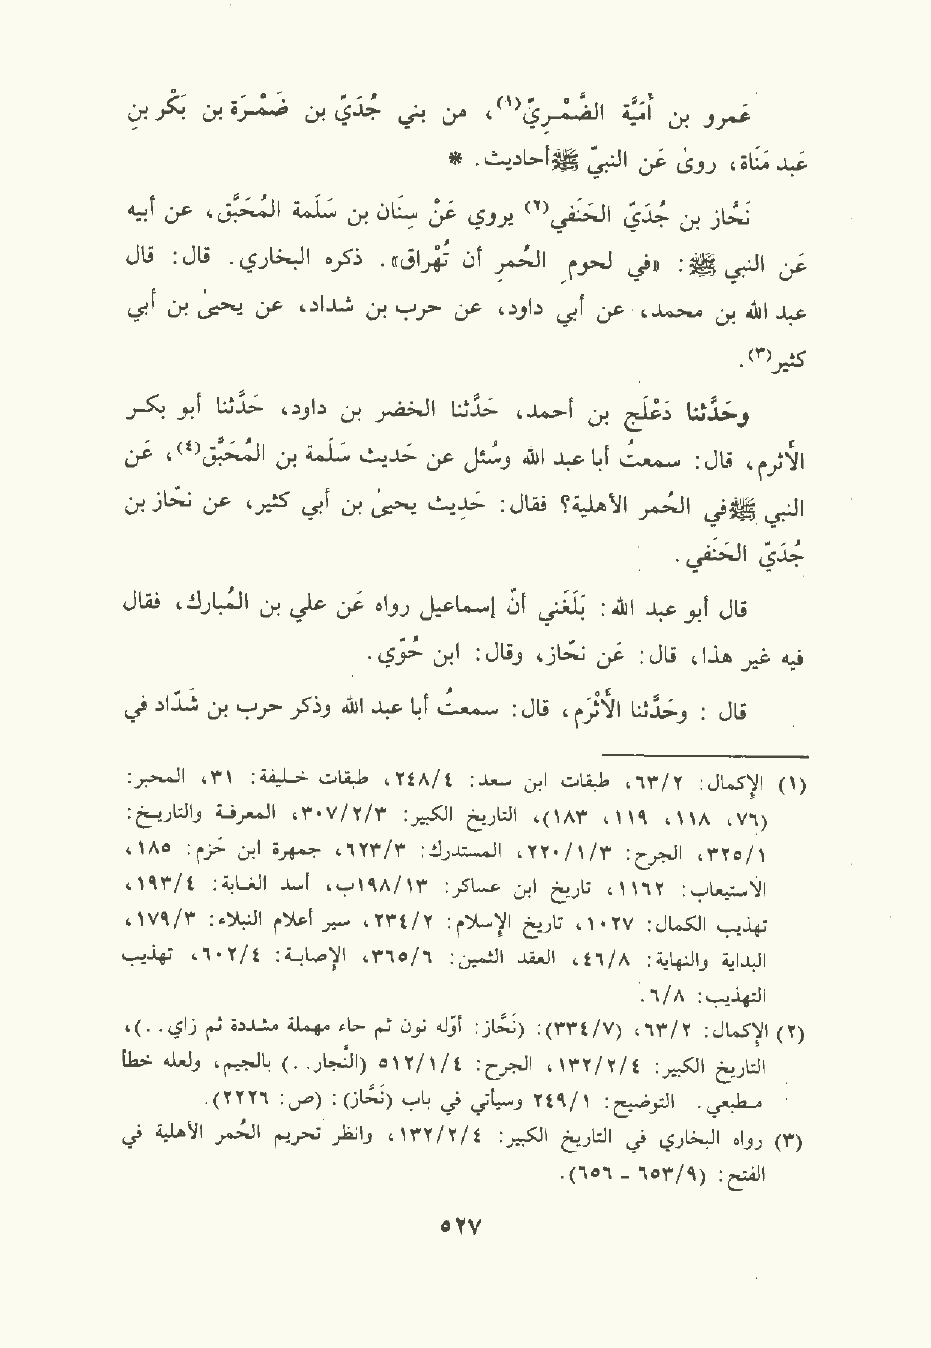 عَمرو بن أُمَيَّة الضَّمْريّ(١)، من بني جُدَيّ بن ضَمْرَة بن بَكْر بن
عَبد مَنَاة، روىٰ عَن النبيّ ﷺ أحاديث. *
نَحَّاز بن جُدَيّ الحَنَفي(٢) يروي عَنْ سِنَان بن سَلَمة المُحَبَّق، عن أبيه
عَن النبي ﷺ: «في لحوم الحُمر أن تُهْراق». ذكره البخاري. قال: قال
عبد الله بن محمد، عن أبي داود، عن حرب بن شداد، عن يحيىٰ بن أبي
كثير(٣).
وحَدَّثنا دَعْلَج بن أحمد، حَدَّثنا الخضر بن داود، حَدَّثنا أبو بكر
الأثرم، قال: سمعتُ أبا عبد الله وسُئل عن حَديث سَلَمة بن المُحَبَّق(٤)، عَن
النبي ﷺ في الحُمر الأهلية؟ فقال: حَديث يحيىٰ بن أبي كثير، عن نحّاز بن
جُدَيّ الحَنَفي.
قال أبو عبد الله: بَلَغَني أنّ إسماعيل رواه عَن علي بن المُبارك، فقال
فيه غير هذا، قال: عَن نحّاز، وقال: ابن حُوّي.
قال : وحَدَّثنا الأَثْرَم، قال: سمعتُ أبا عبد الله وذكر حرب بن شَدّاد في
(١) الإكمال: ٦٣/٢، طبقات ابن سعد: ٢٤٨/٤، طبقات خليفة: ٣١، المحبر:
(٧٦، ١١٨، ١١٩، ١٨٣)، التاريخ الكبير: ٣٠٧/٢/٣، المعرفة والتاريخ:
٣٢٥/١، الجرح: ٢٢٠/١/٣، المستدرك: ٦٢٣/٣، جمهرة ابن حَزم: ١٨٥،
الاستيعاب: ١١٦٢، تاريخ ابن عساكر: ١٩٨/١٣ب، أسد الغابة: ١٩٣/٤،
تهذيب الكمال: ١٠٢٧، تاريخ الإسلام: ٢٣٤/٢، سير أعلام النبلاء: ١٧٩/٣،
البداية والنهاية: ٤٦/٨، العقد الثمين: ٣٦٥/٦، الإصابة: ٦٠٢/٤، تهذيب
التهذيب: ٦/٨.
(٢) الإكمال: ٦٣/٢، (٣٣٤/٧): (نَحَّاز: أوّله نون ثم حاء مهملة مشددة ثم زاي. .)،
التاريخ الكبير: ١٣٢/٢/٤، الجرح: ٥١٢/١/٤ (النَّجار. .) بالجيم، ولعله خطأ
مطبعي. التوضيح: ٢٤٩/١ وسيأتي في باب (نَحَّاز): (ص: ٢٢٢٦).
(٣) رواه البخاري في التاريخ الكبير: ١٣٢/٢/٤، وانظر تحريم الحُمر الأهلية في
الفتح: (٦٥٣/٩ - ٦٥٦).
٥٢٧